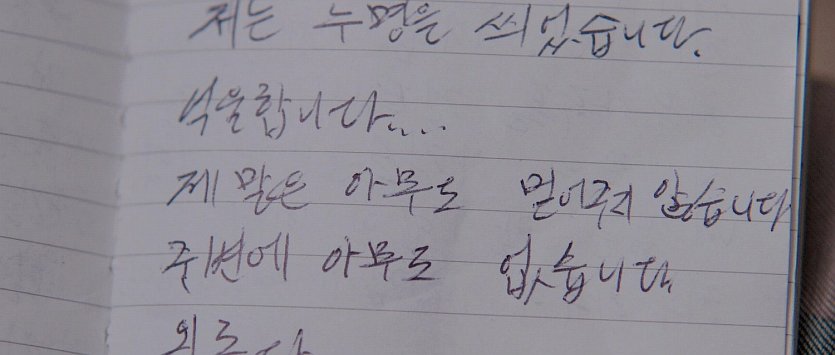 저는 누명을 씌었습니다.
억울합니다....
제 말은 아무도 믿어주지 않습니다
주변에 아무도 없습니다.
외롭다